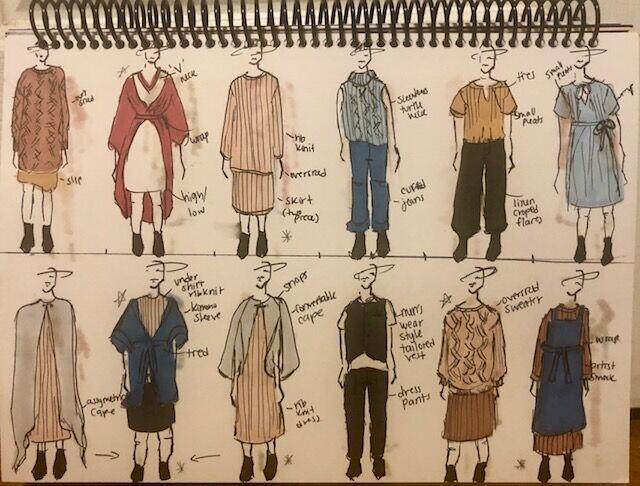 slip
'V'
neck
wrap
high/
low
rib
knit
oversized
skirt
(two
piece)
sleeveless
turtle
neck
cuffed
jeans
ties
small
pleats
linen
cropped
flares
small
pleats
asymmetric
cape
under
shirt
rib knit
kimono
sleeve
tied
snaps
convertable
cape
rib
knit
dress
men's
wear
style
tailored
vest
dress
pants
oversized
sweater
wrap
artist
smock